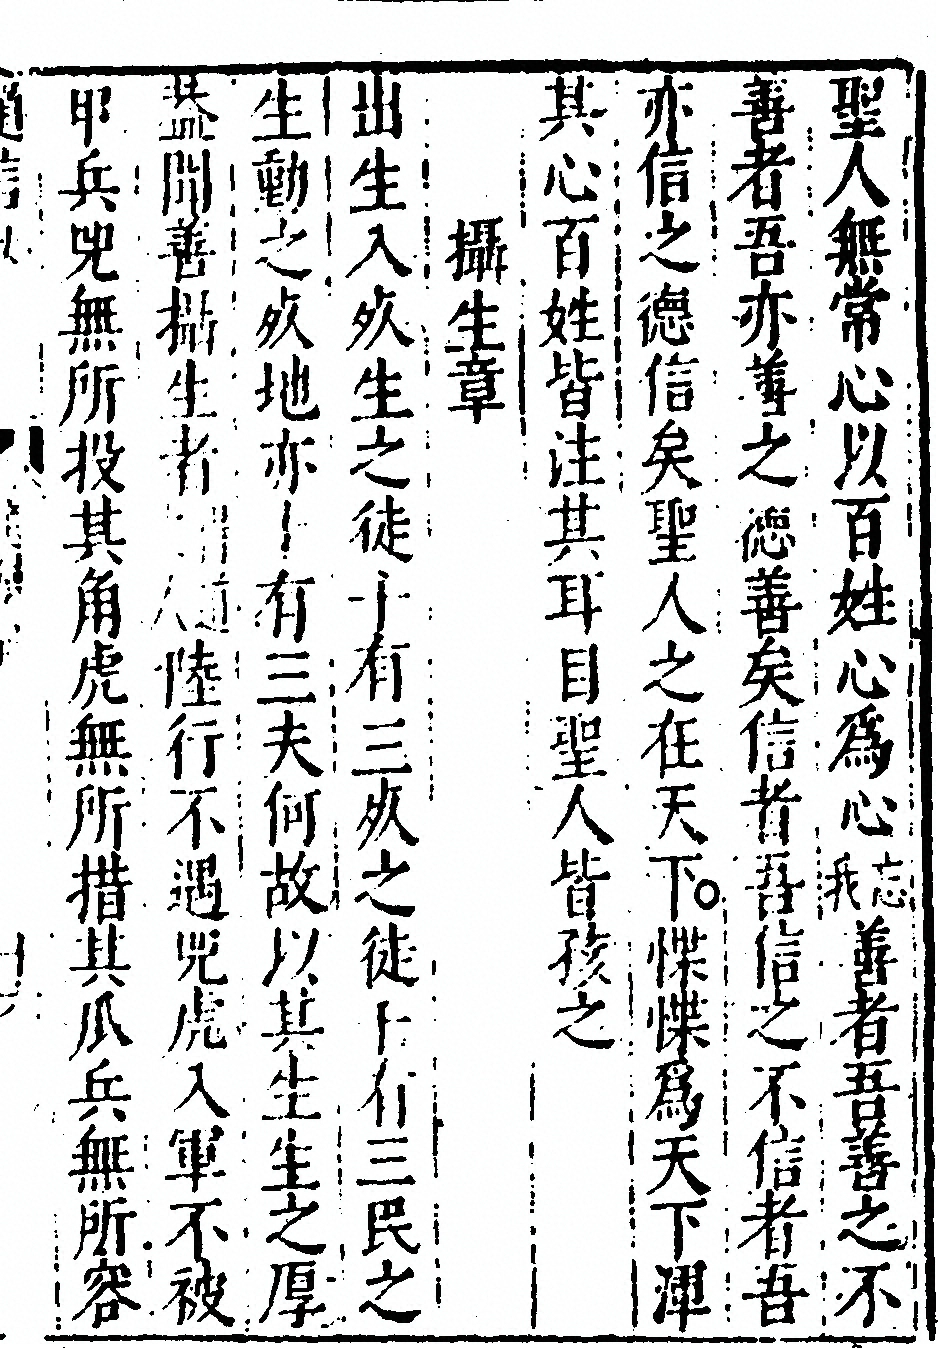 聖人無常心以百姓心爲心忘我善者吾善之不
善者吾亦善之德善矣信者吾信之不信者吾
亦信之德信矣聖人之在天下惵惵爲天下渾
其心百姓皆注其耳目聖人皆孩之
攝生章
出生入𣦸生之徒十有三𣦸之徒十有三民之
生動之𣦸地亦十有三夫何故以其生生之厚
葢聞善攝生者陸行不遇兕虎入軍不被
甲兵兕無所投其角虎無所措其爪兵無所容